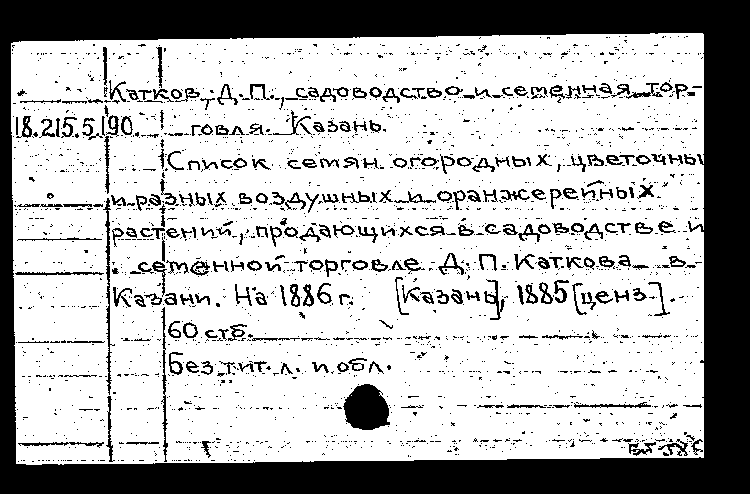 Катков, Д. П., садоводство и семенная тор-
18.215.5.190. говля. Казань.
Список семян огородных, цветочны
и разных воздушных и оранжерейных
растений, продающихся в садоводстве и
семенной торговле Д. П. Каткова в
Казани. На 1886 г. [Казань, 1885 [ценз.].
60 стб.
Без тит. л. и обл.